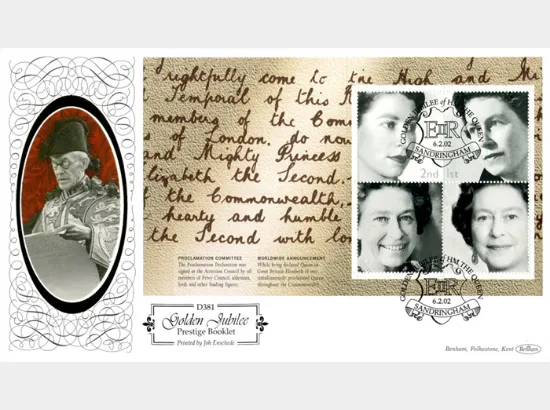 rightfully come to the High and Mi
Temporal of this R
members of the Com
s of London, do now
and Mighty Princess
lizabeth the Second,
the Commonwealth,
hearty and humble
the Second with lo
GOLDEN JUBILEE of H.M. THE QUEEN
EIIR
6.2.02
SANDRINGHAM
2nd 1st
PROCLAMATION COMMITTEE
The Proclamation Declaration was
signed at the Accession Council by all
members of Privy Council, aldermen,
lords and other leading figures.
WORLDWIDE ANNOUNCEMENT
While being declared Queen in
Great Britain Elizabeth II was
simultaneously proclaimed Queen
throughout the Commonwealth.
GOLDEN JUBILEE of H.M. THE QUEEN
EIIR
6.2.02
SANDRINGHAM
D381
Golden Jubilee
Prestige Booklet
Printed by Joh Enschede
Benham, Folkestone, Kent Benham